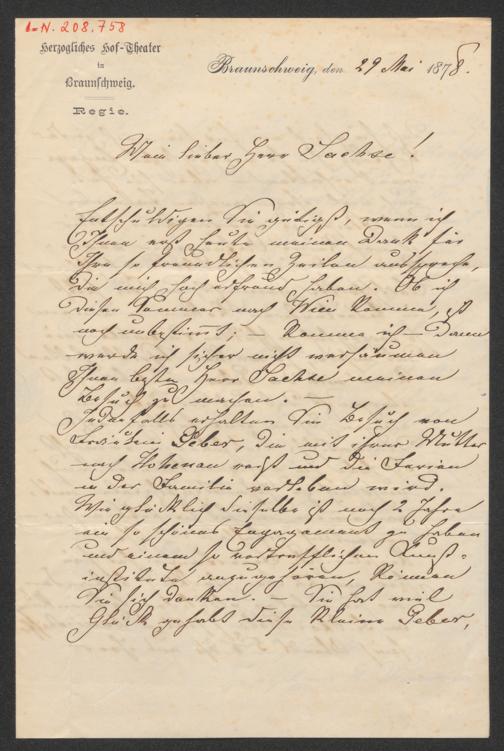 I.N. 208.758
Herzogliches Hof-Theater
in
Braunschweig.
Regie.
Braunschweig, den 29 Mai 1878.
Mein lieber Herr Sachse!
Entschuldigen Sie gütigst, wenn ich
Ihnen erst heute meinen Dank für
Ihre so freundlichen Zeilen ausspreche,
die mich hoch erfreut haben. Ob ich
diesen Sommer nach Wien komme, ist
noch unbestimmt; – komme ich – dann
werde ich sicher nicht versäumen
Ihnen bester Herr Sachse meinen
Besuch zu machen. –
Jedenfalls erhalten Sie Besuch von
Fräulein Geber, die mit ihrer Mutter
nach Hohenau reist und die Ferien
in der Familie verleben wird.
Wie glücklich dieselbe ist nach 2 Jahre
ein so schönes Engagement zu haben
und einem so vortrefflichen Kunst-
institute anzugehören, können
Sie sich denken. – Sie hat viel
Glück gehabt diese kleine Geber,